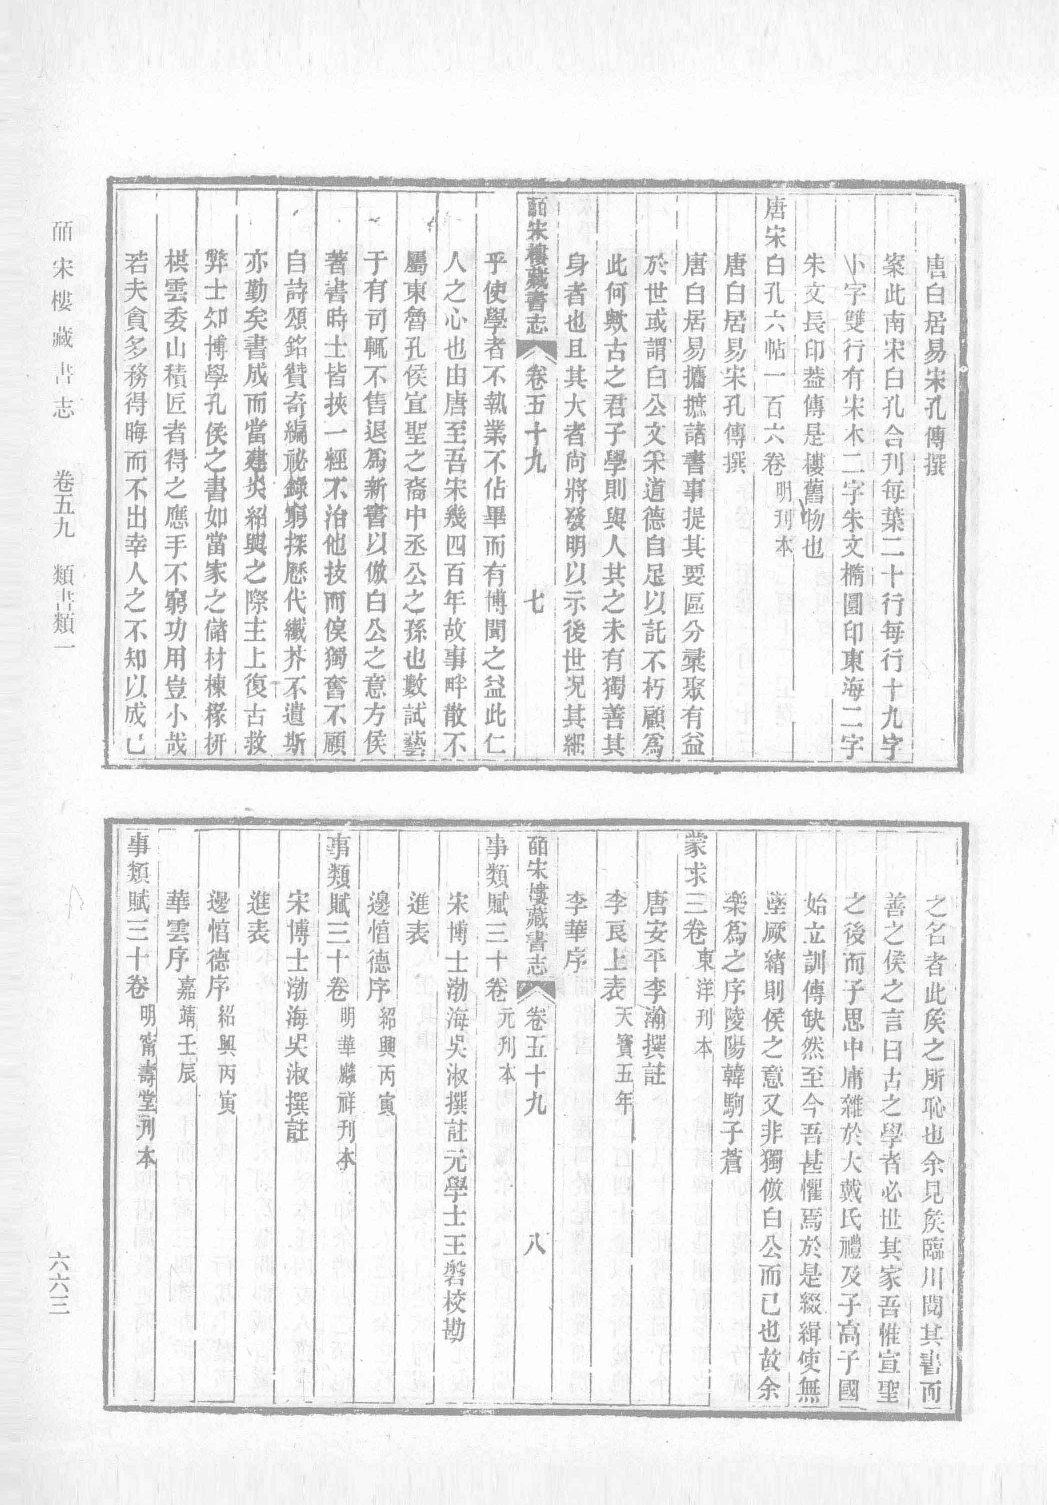 唐白居易宋孔傳撰
案此南宋白孔合刊每葉二十行每行十九字
小字雙行有宋木二字朱文橢圓印東海二字
朱文長印葢傳是樓舊物也
唐宋白孔六帖一百六卷明刊本
唐白居易宋孔傳撰
唐白居易攟摭諸書事提其要區分彙聚有益
於世或謂白公文釆道德自足以託不朽顧爲
此何歟古之君子學則與人其之未有獨善其
身者也且其大者尚將發明以示後世况其細
皕宋樓藏書志 卷五十九 七
乎使學者不執業不佔畢而有博聞之益此仁
人之心也由唐至吾宋幾四百年故事畔散不
屬東魯孔侯宣聖之裔中丞公之孫也數試藝
于有司輒不售退爲新書以倣白公之意方侯
著書時士皆挾一經不治他技而侯獨奮不顧
自詩頌銘贊奇編祕錄窮探歷代纖芥不遺斯
亦勤矣書成而當建炎紹興之際主上復古救
弊士知博學孔侯之書如當家之儲材棟椽枅
栱雲委山積匠者得之應手不窮功用豈小哉
若夫貪多務得晦而不出幸人之不知以成己
之名者此侯之所恥也余見侯臨川閱其書而
善之侯之言曰古之學者必世其家吾惟宣聖
之後而子思中庸雜於大戴氏禮及子高子國
始立訓傳缺然至今吾甚懼焉於是綴緝使無
墜厥緒則侯之意又非獨倣白公而已也故余
樂爲之序陵陽韓駒子蒼
蒙求三卷東洋刊本
唐安平李瀚撰註
李良上表天寶五年
李華序
皕宋樓藏書志 卷五十九 八
事類賦三十卷元刊本
宋博士渤海吳淑撰註元學士王磐校勘
進表
邊惇德序紹興丙寅
事類賦三十卷明華麟祥刊本
宋博士渤海吳淑撰註
進表
邊惇德序紹興丙寅
華雲序嘉靖壬辰
事類賦三十卷明甯壽堂刊本
皕宋樓藏書志 卷五九 類書類一
六六三